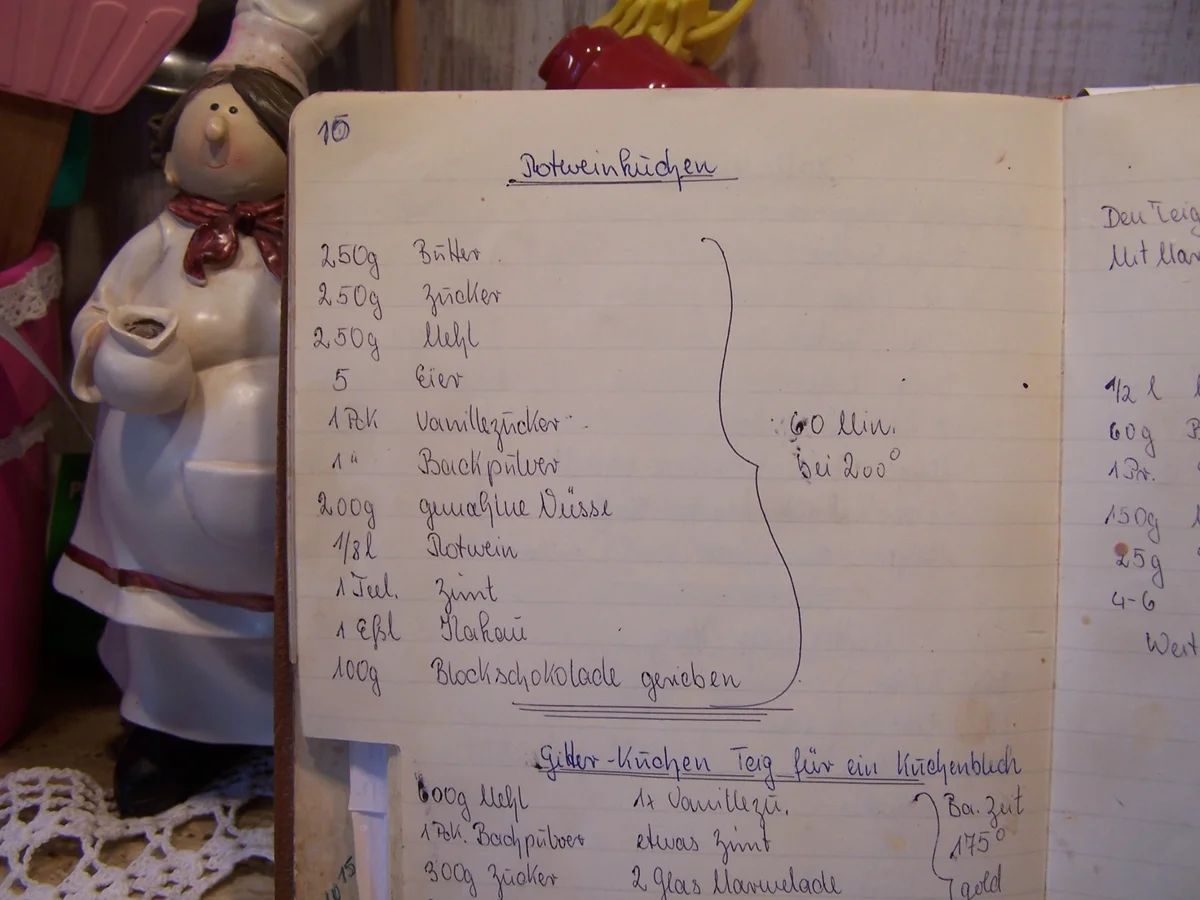 15
Rotweinkuchen
250g Butter
250g Zucker
250g Mehl
5 Eier
1 Pck Vanillezucker
1 " Backpulver
200g gemahlne Nüsse
1/8 l Rotwein
1 Teel. Zimt
1 Eßl Kakau
100g Blockschokolade gerieben
60 Min.
bei 200°
Gitter-Kuchen Teig für ein Kuchenblech
600g Mehl 1x Vanillezu.
1 Pck. Backpulver etwas Zimt
300g Zucker 2 Glas Marmelade
Ba. Zeit
175°
gold
15
Den Teig
Mit Mar
1/2 l
60g B
1 Pr.
150g
25g
4-6
Weit